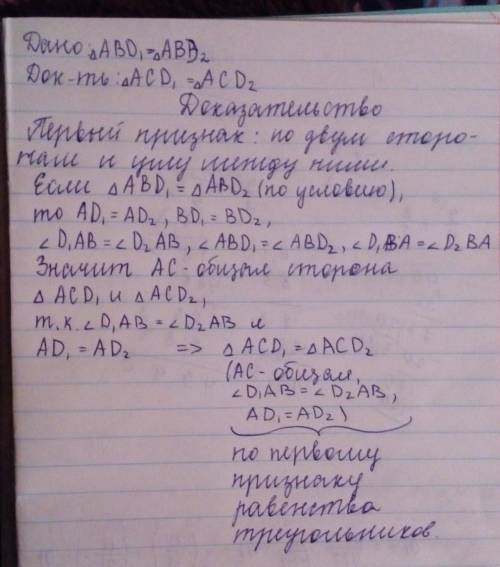 Дано: △ABD₁=△ABD₂
Док-ть: △ACD₁=△ACD₂
Доказательство
Первый признак: по двум сторо-
нам и углу между ними.
Если △ABD₁=△ABD₂ (по условию),
то AD₁=AD₂, BD₁=BD₂,
∠D₁AB=∠D₂AB, ∠ABD₁=∠ABD₂, ∠D₁BA=∠D₂BA
Значит AC-общая сторона
△ACD₁ и △ACD₂,
т.к. ∠D₁AB=∠D₂AB и
AD₁=AD₂ => △ACD₁=△ACD₂
(AC-общая,
∠D₁AB=∠D₂AB,
AD₁=AD₂)
по первому
признаку
равенства
треугольников.